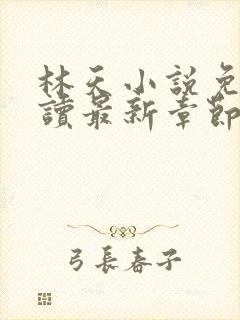 林天小說免
讀最新章節
弓長春子